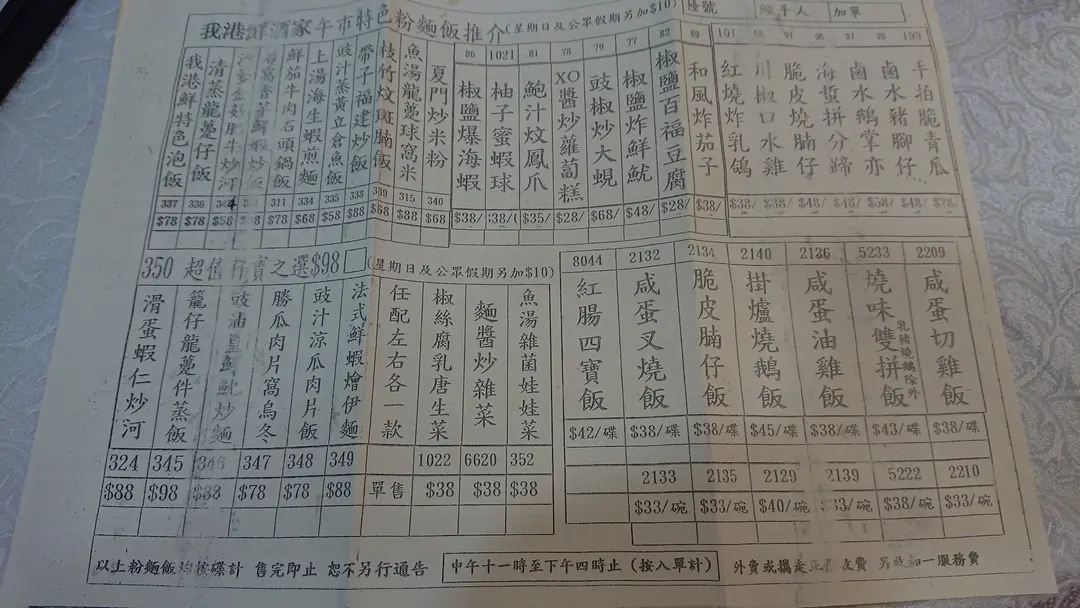 我港鮮酒家午市特色粉麵飯推介(星期日及公眾假期另加$10)
檯號 經手人 加單
我港鮮特色泡飯 337 $78
清蒸龍躉仔飯 336 $78
肥牛炒河 $58
炒飯
鮮茄牛肉石頭鍋飯 311 $78
上湯海生蝦煎麵 334 $68
豉汁蒸黃立倉魚飯 335 $58
帶子福建炒飯 338 $88
枝竹炆斑腩飯 339 $68
魚湯龍躉球窩米 315 $88
夏門炒米粉 340 $68
86 椒鹽爆海蝦 $38/
1021 柚子蜜蝦球 $38/
81 鮑汁炆鳳爪 $35/
78 XO醬炒蘿蔔糕 $28/
79 豉椒炒大蜆 $68/
77 椒鹽炸鮮魷 $48/
82 椒鹽百福豆腐 $28/
89 和風炸茄子 $38/
101 紅燒炸乳鴿 $38/
川椒口水雞 $38/
脆皮燒腩仔 $48/
海蜇拼分蹄 $48/
鹵水鵝掌亦 $58/
鹵水豬腳仔 $48/
手拍脆青瓜 $28/
350 超值 之選$98 (星期日及公眾假期另加$10)
滑蛋蝦仁炒河 324 $88
籠仔龍躉件蒸飯 345 $98
豉油皇 炒麵
勝瓜肉片窩烏冬 347 $78
豉汁涼瓜肉片飯 348 $78
法式鮮蝦燴伊麵 349 $88
任配左右各一款 單售
椒絲腐乳唐生菜 1022 $38
麵醬炒雜菜 6620 $38
魚湯雜菌娃娃菜 352 $38
8044 紅腸四寶飯 $42/碟
2132 咸蛋叉燒飯 $38/碟 2133 $33/碗
2134 脆皮腩仔飯 $38/碟 2135 $33/碗
2140 掛爐燒鵝飯 $45/碟 2129 $40/碗
2136 咸蛋油雞飯 $38/碟 2139 $33/碗
5233 燒味雙拼飯 乳豬燒鵝除外 $43/碟 5222 $38/碗
2209 咸蛋切雞飯 $38/碟 2210 $33/碗
以上粉麵飯均按碟計 售完即止 恕不另行通告
中午十一時至下午四時止 (按入單計)
外賣或攜走 收費 另 加一服務費